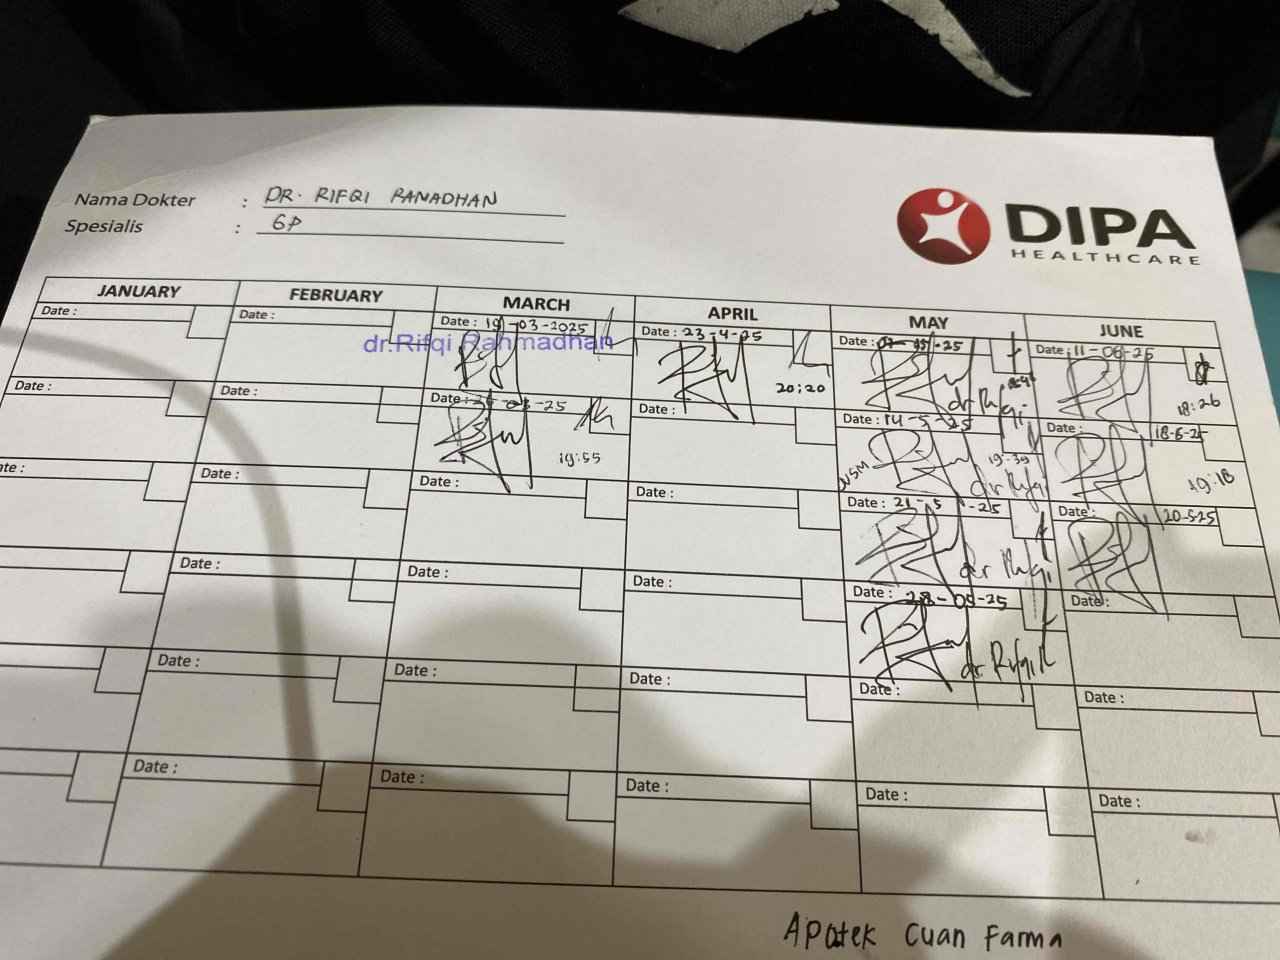 Nama Dokter : DR. RIFQI RANADHAN
Spesialis : GP
DIPA
HEALTHCARE
JANUARY FEBRUARY MARCH APRIL MAY JUNE
Date : Date : Date : 19-03-2025 Date : 23-4-25 Date : -05-25 Date : 11-06-25
dr.Rifqi Rahmadhan
20:20 dr Rifqi 18:26
Date : Date : Date : -03-25 Date : Date : 14-5-25 Date : 18-6-25
19:55 19:39 dr Rifqi 19:18
Date : Date : Date : Date : Date : 21-5-25 Date : 20-525
dr Rifqi
Date : Date : Date : Date : 28-05-25 Date :
dr Rifqi R
Date : Date : Date : Date : Date :
Date : Date : Date : Date : Date :
Apotek Cuan Farma